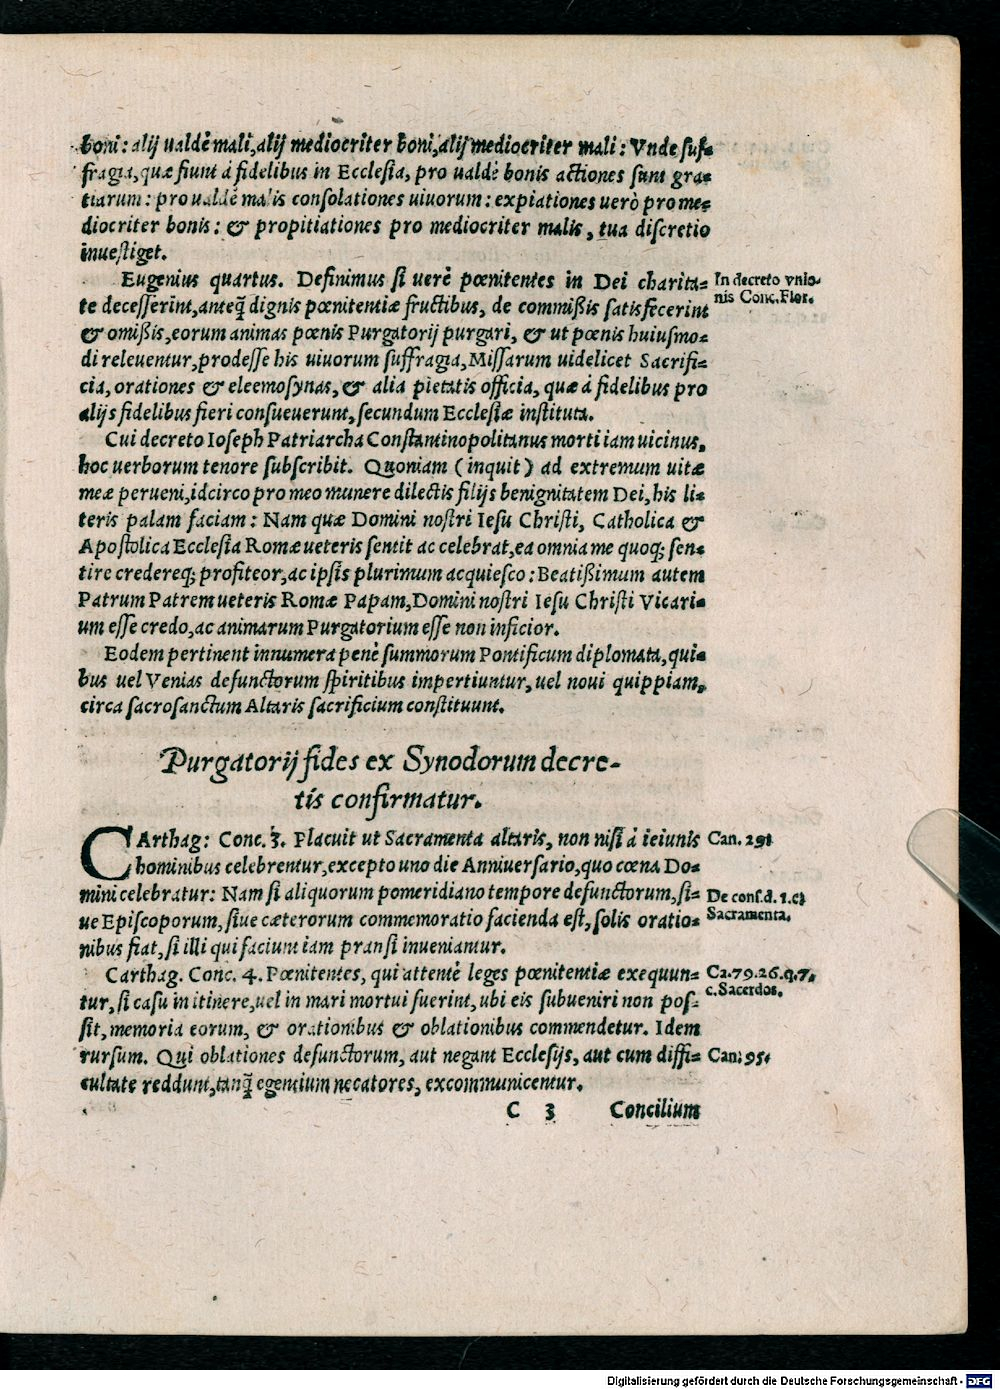 boni: alij ualdè mali, alij mediocriter boni, alij mediocriter mali: Vnde suf-
fragia, quæ fiunt à fidelibus in Ecclesia, pro ualdè bonis actiones sunt gra-
tiarum: pro ualdè malis consolationes uiuorum: expiationes uerò pro me-
diocriter bonis: & propitiationes pro mediocriter malis, tua discretio
inuestiget.
Eugenius quartus. Definimus si uerè pœnitentes in Dei charita-
te decesserint, anteq̃ dignis pœnitentiæ fructibus, de commißis satisfecerint
& omißis, eorum animas pœnis Purgatorij purgari, & ut pœnis huiusmo-
di releuentur, prodesse his uiuorum suffragia, Missarum uidelicet Sacrifi-
cia, orationes & eleemosynas, & alia pietatis officia, quæ à fidelibus pro
alijs fidelibus fieri consueuerunt, secundum Ecclesiæ instituta.
In decreto vnio-
nis Conc. Flor.
Cui decreto Ioseph Patriarcha Constantinopolitanus morti iam uicinus,
hoc uerborum tenore subscribit. Quoniam (inquit) ad extremum uitæ
meæ perueni, idcirco pro meo munere dilectis filijs benignitatem Dei, his li-
teris palam faciam: Nam quæ Domini nostri Iesu Christi, Catholica &
Apostolica Ecclesia Romæ ueteris sentit ac celebrat, ea omnia me quoq; sen-
tire credereq; profiteor, ac ipsis plurimum acquiesco: Beatißimum autem
Patrum Patrem ueteris Romæ Papam, Domini nostri Iesu Christi Vicari-
um esse credo, ac animarum Purgatorium esse non inficior.
Eodem pertinent innumera penè summorum Pontificum diplomata, qui-
bus uel Venias defunctorum spiritibus impertiuntur, uel noui quippiam,
circa sacrosanctum Altaris sacrificium constituunt.
Purgatorij fides ex Synodorum decre-
tis confirmatur.
CArthag: Conc. 3. Placuit ut Sacramenta altaris, non nisi à ieiunis
hominibus celebrentur, excepto uno die Anniuersario, quo cœna Do-
mini celebratur: Nam si aliquorum pomeridiano tempore defunctorum, si-
ue Episcoporum, siue cæterorum commemoratio facienda est, solis oratio-
nibus fiat, si illi qui faciunt iam pransi inueniantur.
Can. 29.
De cons. d. 1. c.
Sacramenta.
Carthag. Conc. 4. Pœnitentes, qui attentè leges pœnitentiæ exequun-
tur, si casu in itinere, uel in mari mortui fuerint, ubi eis subueniri non pos-
sit, memoria eorum, & orationibus & oblationibus commendetur. Idem
rursum. Qui oblationes defunctorum, aut negant Ecclesijs, aut cum diffi-
cultate reddunt, tanq̃ egentium necatores, excommunicentur.
Ca. 79. 26. q. 7.
c. Sacerdos.
Can: 95.
C 3 Concilium
Digitalisierung gefördert durch die Deutsche Forschungsgemeinschaft - DFG